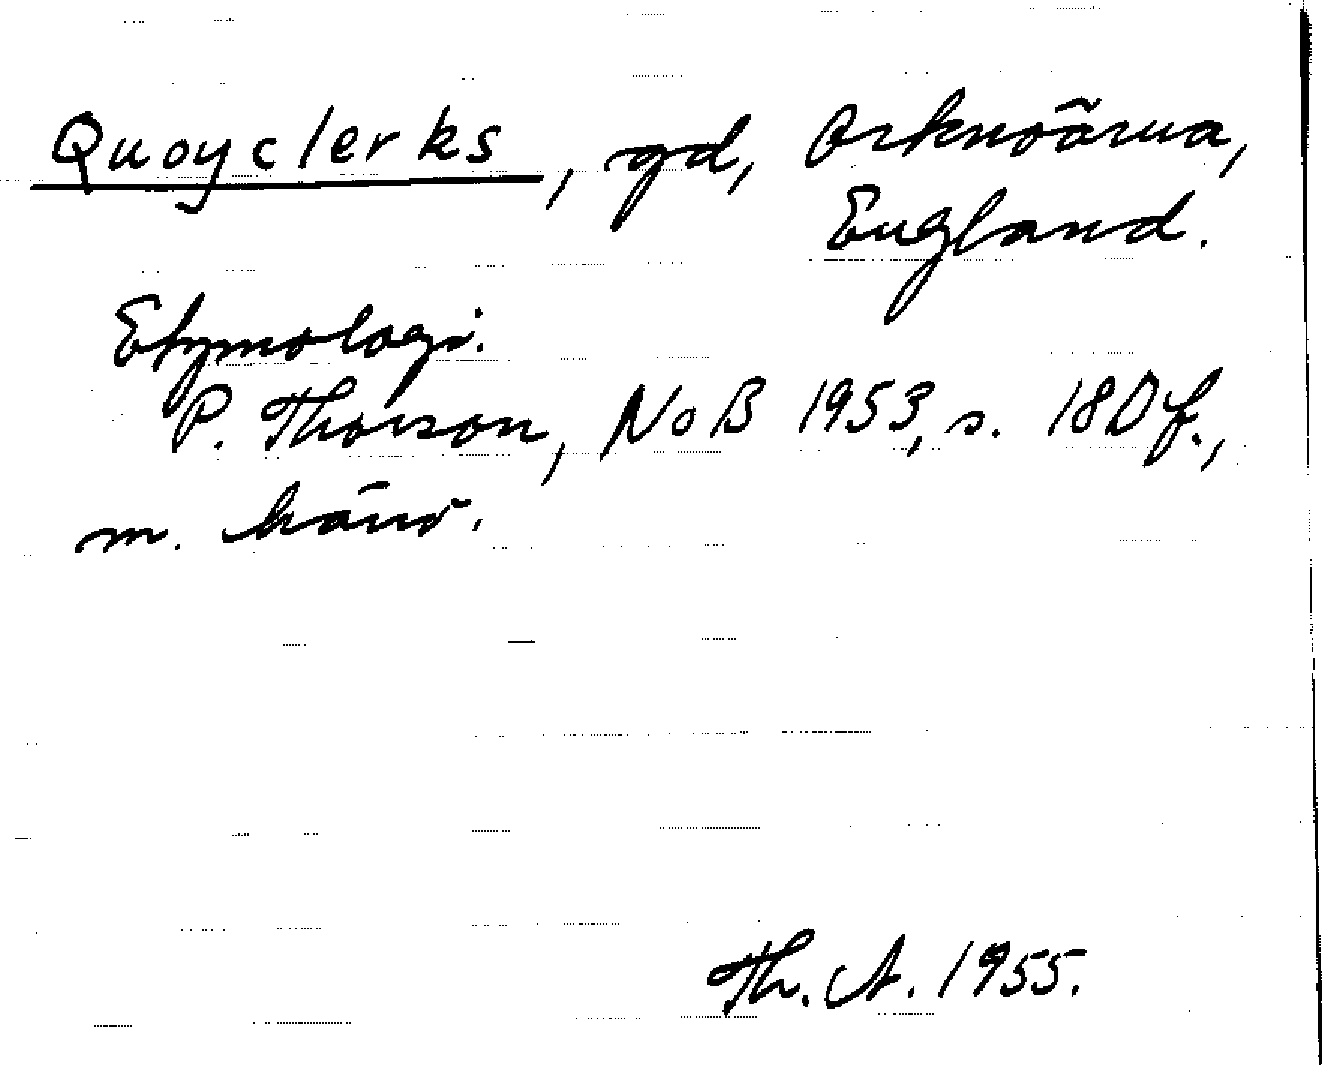 Quoyclerks, gd, Orknöarna,
England.
Etymologi.
P. Thorson, NoB 1953, s. 180 f.,
m. hänv.
Th. A. 1955.